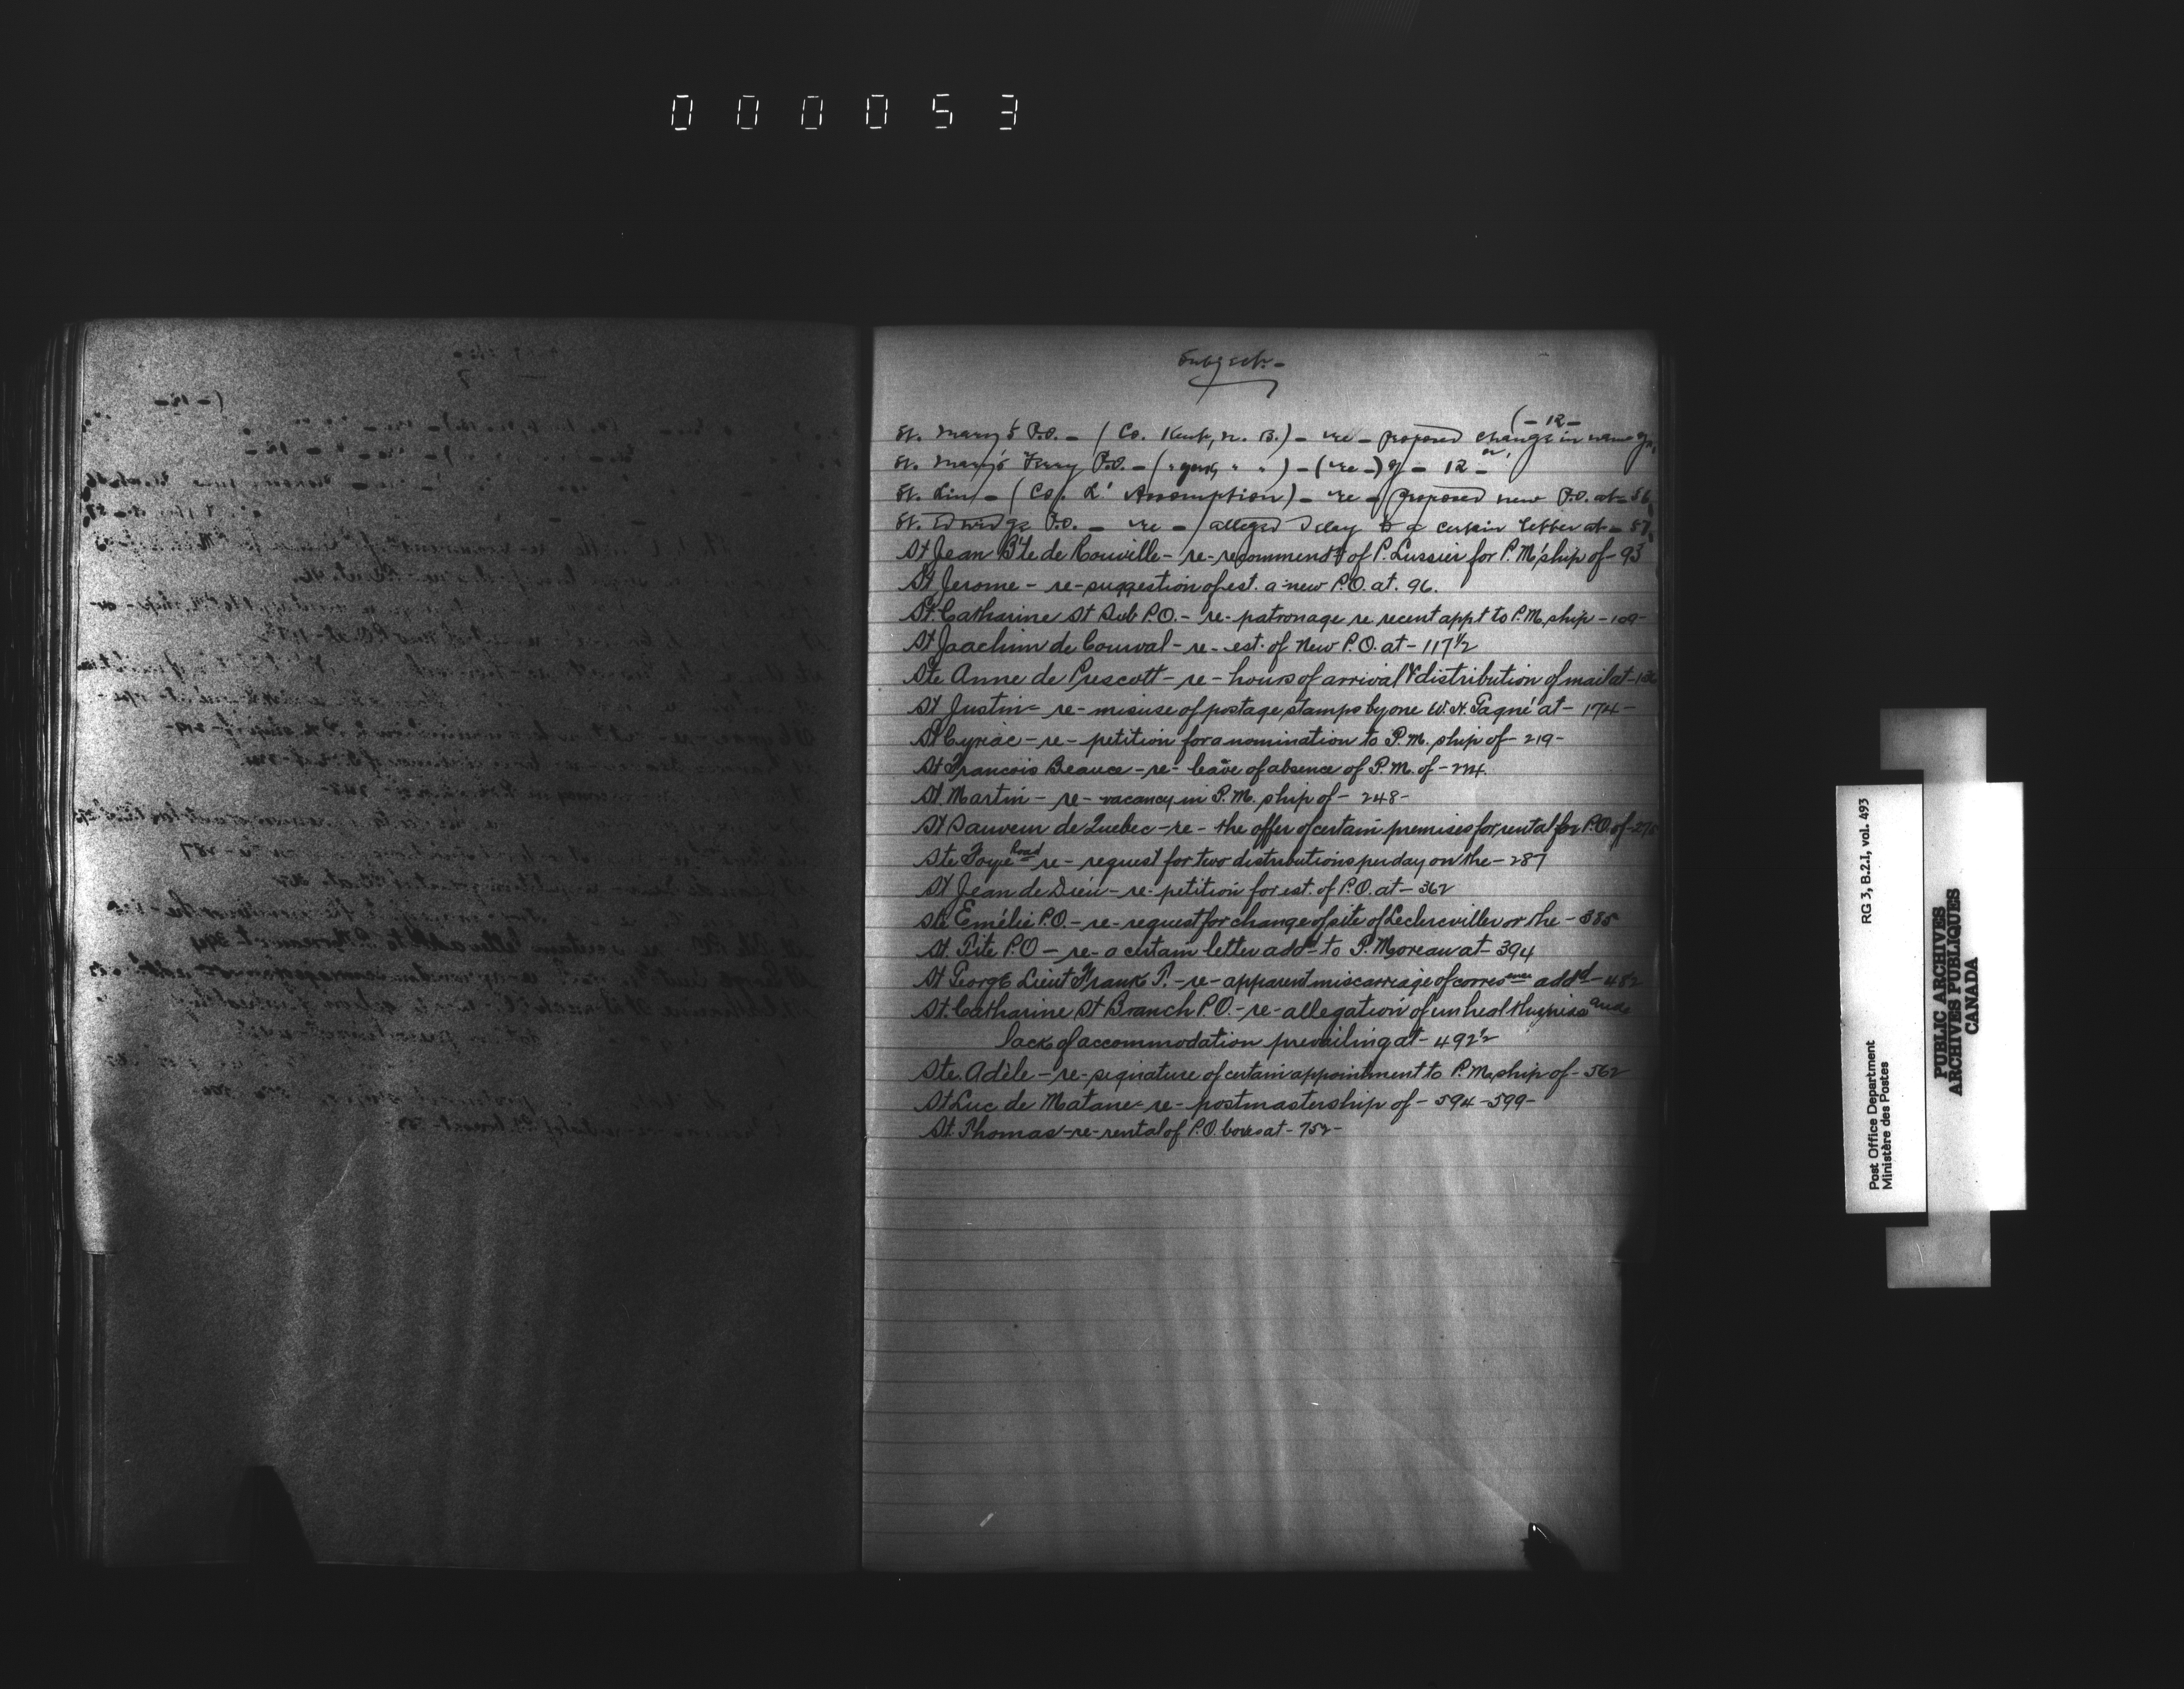 000053
Subject.-
(-12-
St. Mary's P.O. - (Co. Kent, N. B.) - re - proposed change in name of,
St. Mary's Ferry P.O. - ( " York, " " ) - ( re - ) of - 12 -
St. Lin - (Co. L'Assomption) - re - proposed new P.O. at - 56
St. Edwidge P.O. - re - alleged delay to a certain letter at - 87
St Jean B'te de Rouville - re - recommendt of P. Lussier for P.M'ship of - 93
St Jerome - re - suggestion of est. a new P.O. at. 96.
St. Catharine St Sub P.O. - re - patronage re recent appt to P.M. ship - 109 -
St Joachim de Courval - re - est. of New P.O. at - 117 1/2
Ste Anne de Prescott - re - hours of arrival & distribution of mail at -
St Justin - re - misuse of postage stamps by one W. H. Gagné at - 174 -
St Cyriac - re - petition for a nomination to P.M. ship of - 219 -
St Francois Beauce - re - leave of absence of P.M. of - 224.
St. Martin - re - vacancy in P.M. ship of - 248 -
St Sauveur de Quebec - re - the offer of certain premises for rental for P.O. of -
Ste Foye Road - re - request for two distributions per day on the - 287
St Jean de Dieu - re - petition for est. of P.O. at - 362
Ste Emélie P.O. - re - request for change of site of Leclercville or the - 385
St. Tite P.O - re - a certain letter addd to P. Moreau at - 394
St George Lieut Frank T. - re - apparent miscarriage of corresence addd - 482
St. Catharine St Branch P.O. - re - allegation of unhealthyness and
lack of accommodation prevailing at - 492 1/2
Ste. Adèle - re - signature of certain appointment to P.M. ship of - 562
St Luc de Matane - re - postmastership of - 594 - 599 -
St. Thomas - re - rental of P.O. boxes at - 752 -
RG 3, B.2.I, vol. 493
Post Office Department
Ministère des Postes
PUBLIC ARCHIVES
ARCHIVES PUBLIQUES
CANADA